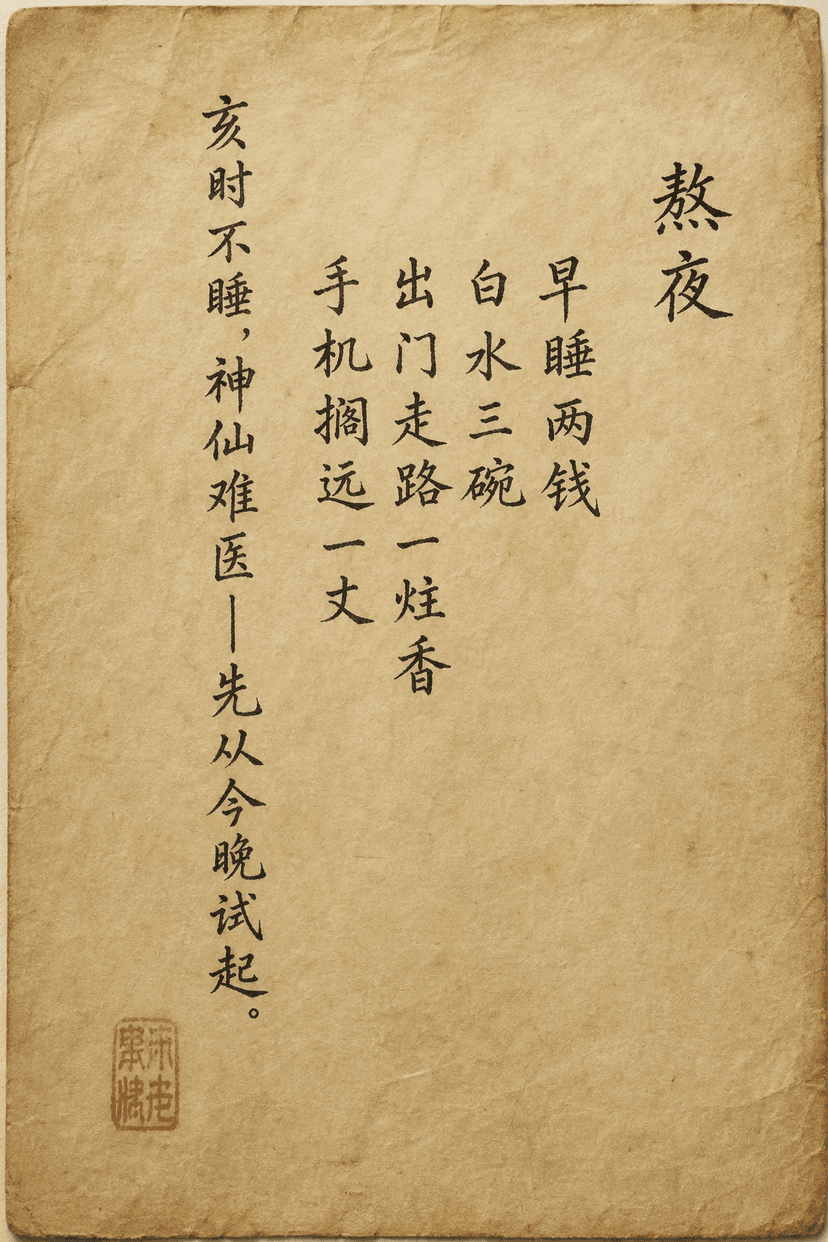 熬夜
早睡两钱
白水三碗
出门走路一炷香
手机搁远一丈
亥时不睡，神仙难医—先从今晚试起。